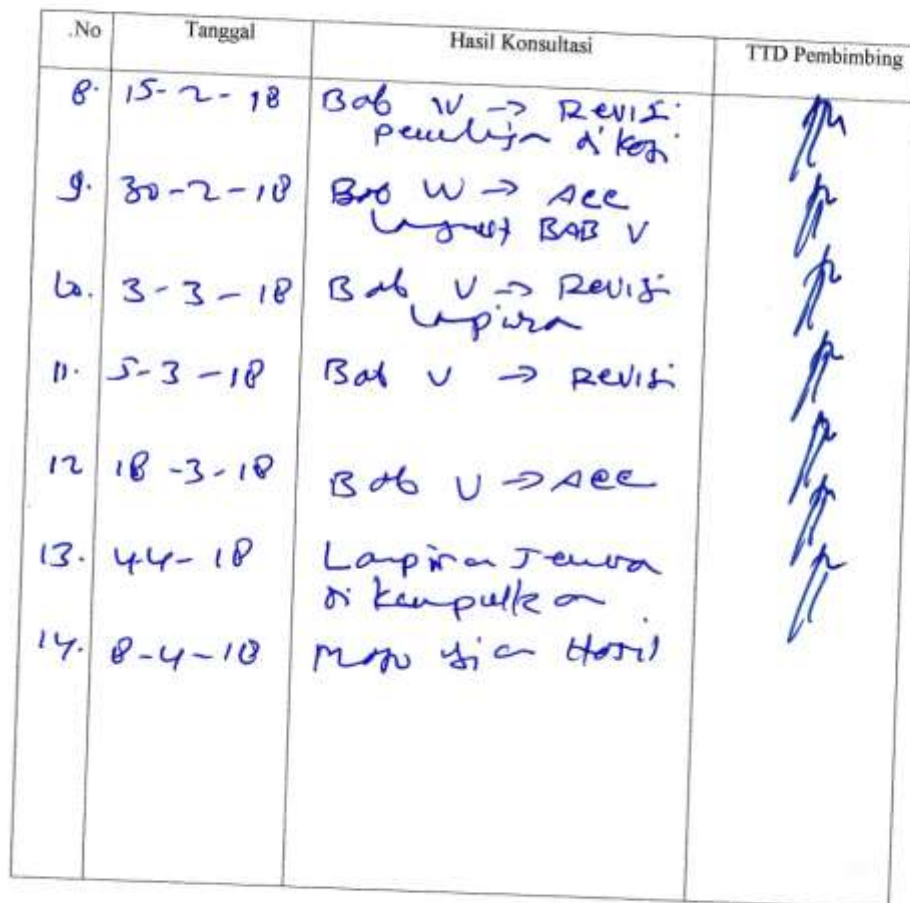 .No Tanggal Hasil Konsultasi TTD Pembimbing
8. 15-2-18 Bab IV → Revisi
penulisan di
9. 30-2-18 Bab IV → Acc
lanjut BAB V
10. 3-3-18 Bab V → Revisi
lampiran
11. 5-3-18 Bab V → Revisi
12 18-3-18 Bab V → Acc
13. 4-4-18 Lampiran semua
di kumpulkan
14. 8-4-18 Maju ujian Hasil